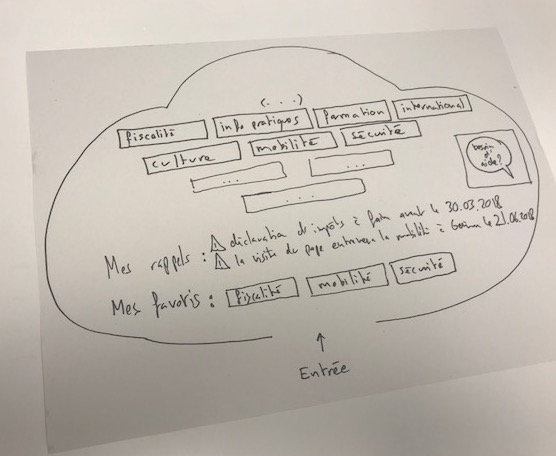 (...)
fiscalité
info pratiques
formation
international
culture
mobilité
sécurité
...
...
...
besoin d'aide?
Mes rappels : ⚠ déclaration d'impôts à faire avant le 30.03.2018
⚠ la visite du pape entravera la mobilité à Genève le 21.06.2018
Mes favoris : fiscalité mobilité sécurité
↑
Entrée